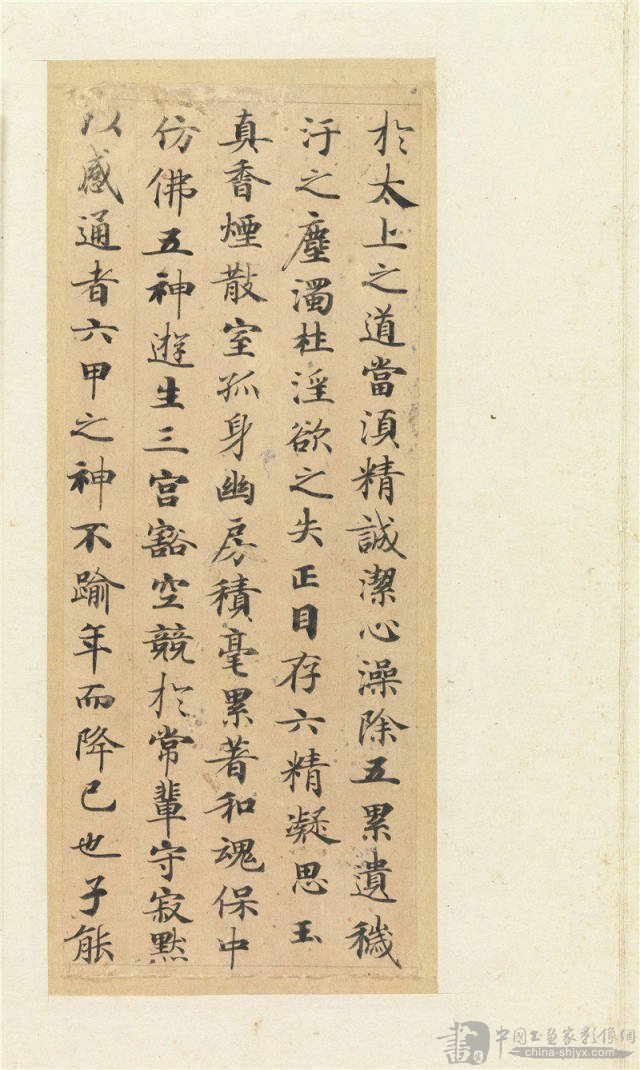 於太上之道當湏精誠潔心澡除五累遺穢
汙之塵濁杜淫欲之失正目存六精凝思玉
真香煙散室孤身幽房積毫累著和魂保中
仿佛五神遊生三宮豁空競於常輩守寂默
以感通者六甲之神不踰年而降己也子能
中國書畫家影像網
china-shjyx.com